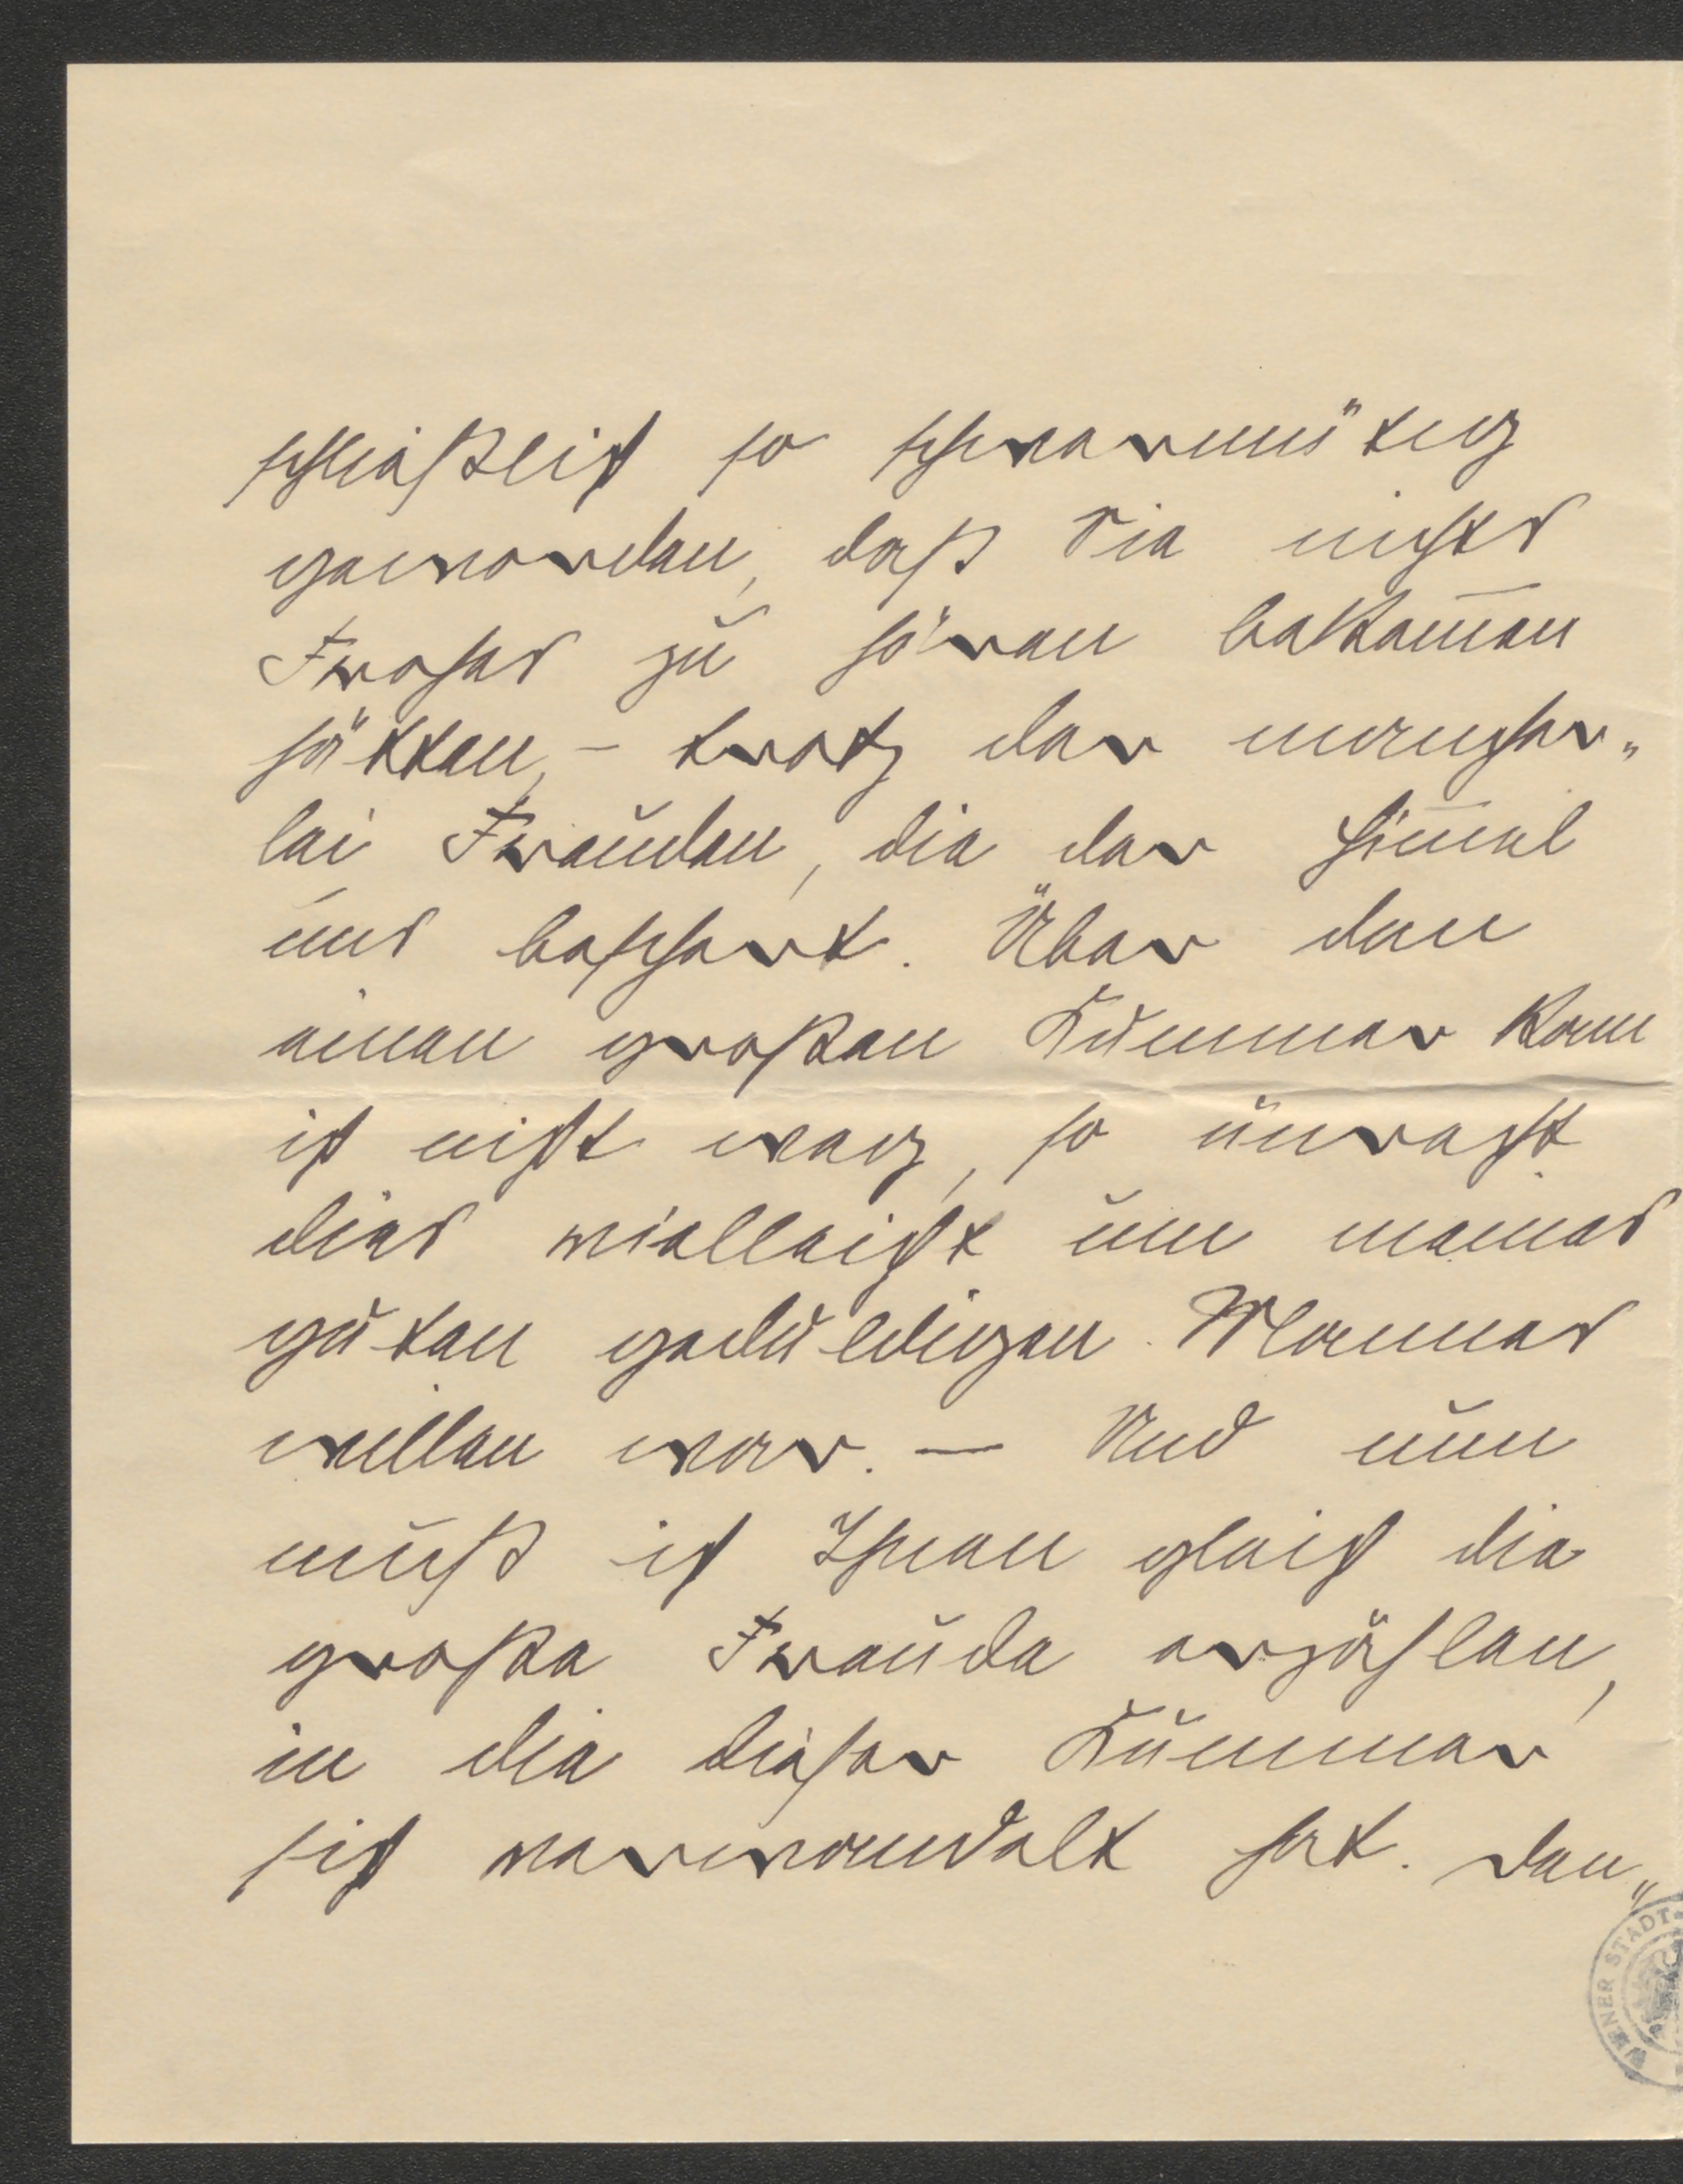 schließlich so schwermütig
geworden, daß Sie nichts
Frohes zu hören bekom̄en
hätten, – trotz der mancher„
lei Freuden, die der Him̄el
uns beschert. Über den
einen großen Kummer kam
ich nicht weg, so unrecht
dies vielleicht um meines
guten geduldigen Mannes
willen war. – Und nun
muß ich Ihnen gleich die
große Freude erzählen,
in die dieser Kummer
sich verwandelt hat. Den„
WIENER STADT